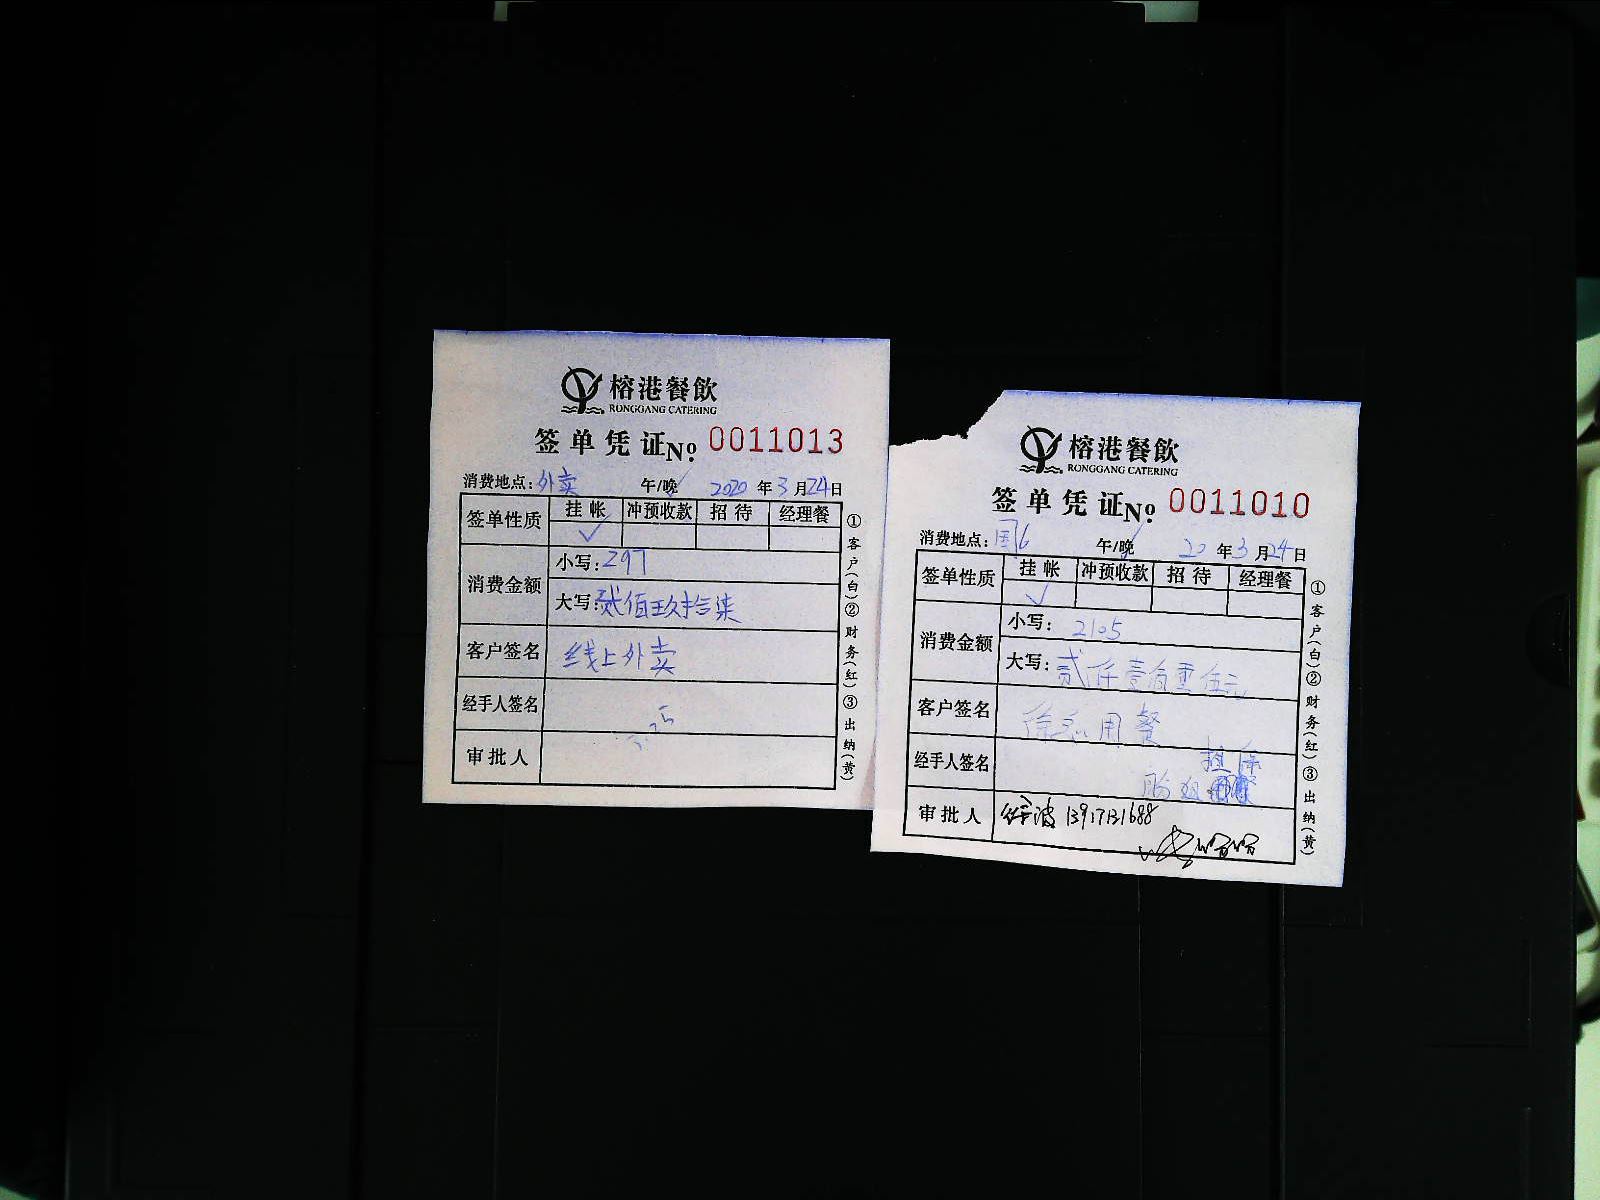 榕港餐飲
RONGGANG CATERING
签单凭证 No 0011013
消费地点：外卖 午/晚 2020 年 3 月 24 日
签单性质 挂帐 冲预收款 招待 经理餐
✓
消费金额 小写：297
大写：贰佰玖拾柒
客户签名 线上外卖
经手人签名
审批人
①客户(白)②财务(红)③出纳(黄)
榕港餐飲
RONGGANG CATERING
签单凭证 No 0011010
消费地点：国6 午/晚 20 年 3 月 24 日
签单性质 挂帐 冲预收款 招待 经理餐
✓
消费金额 小写：2105
大写：贰仟壹佰零伍元
客户签名 徐总用餐
经手人签名
审批人
①客户(白)②财务(红)③出纳(黄)